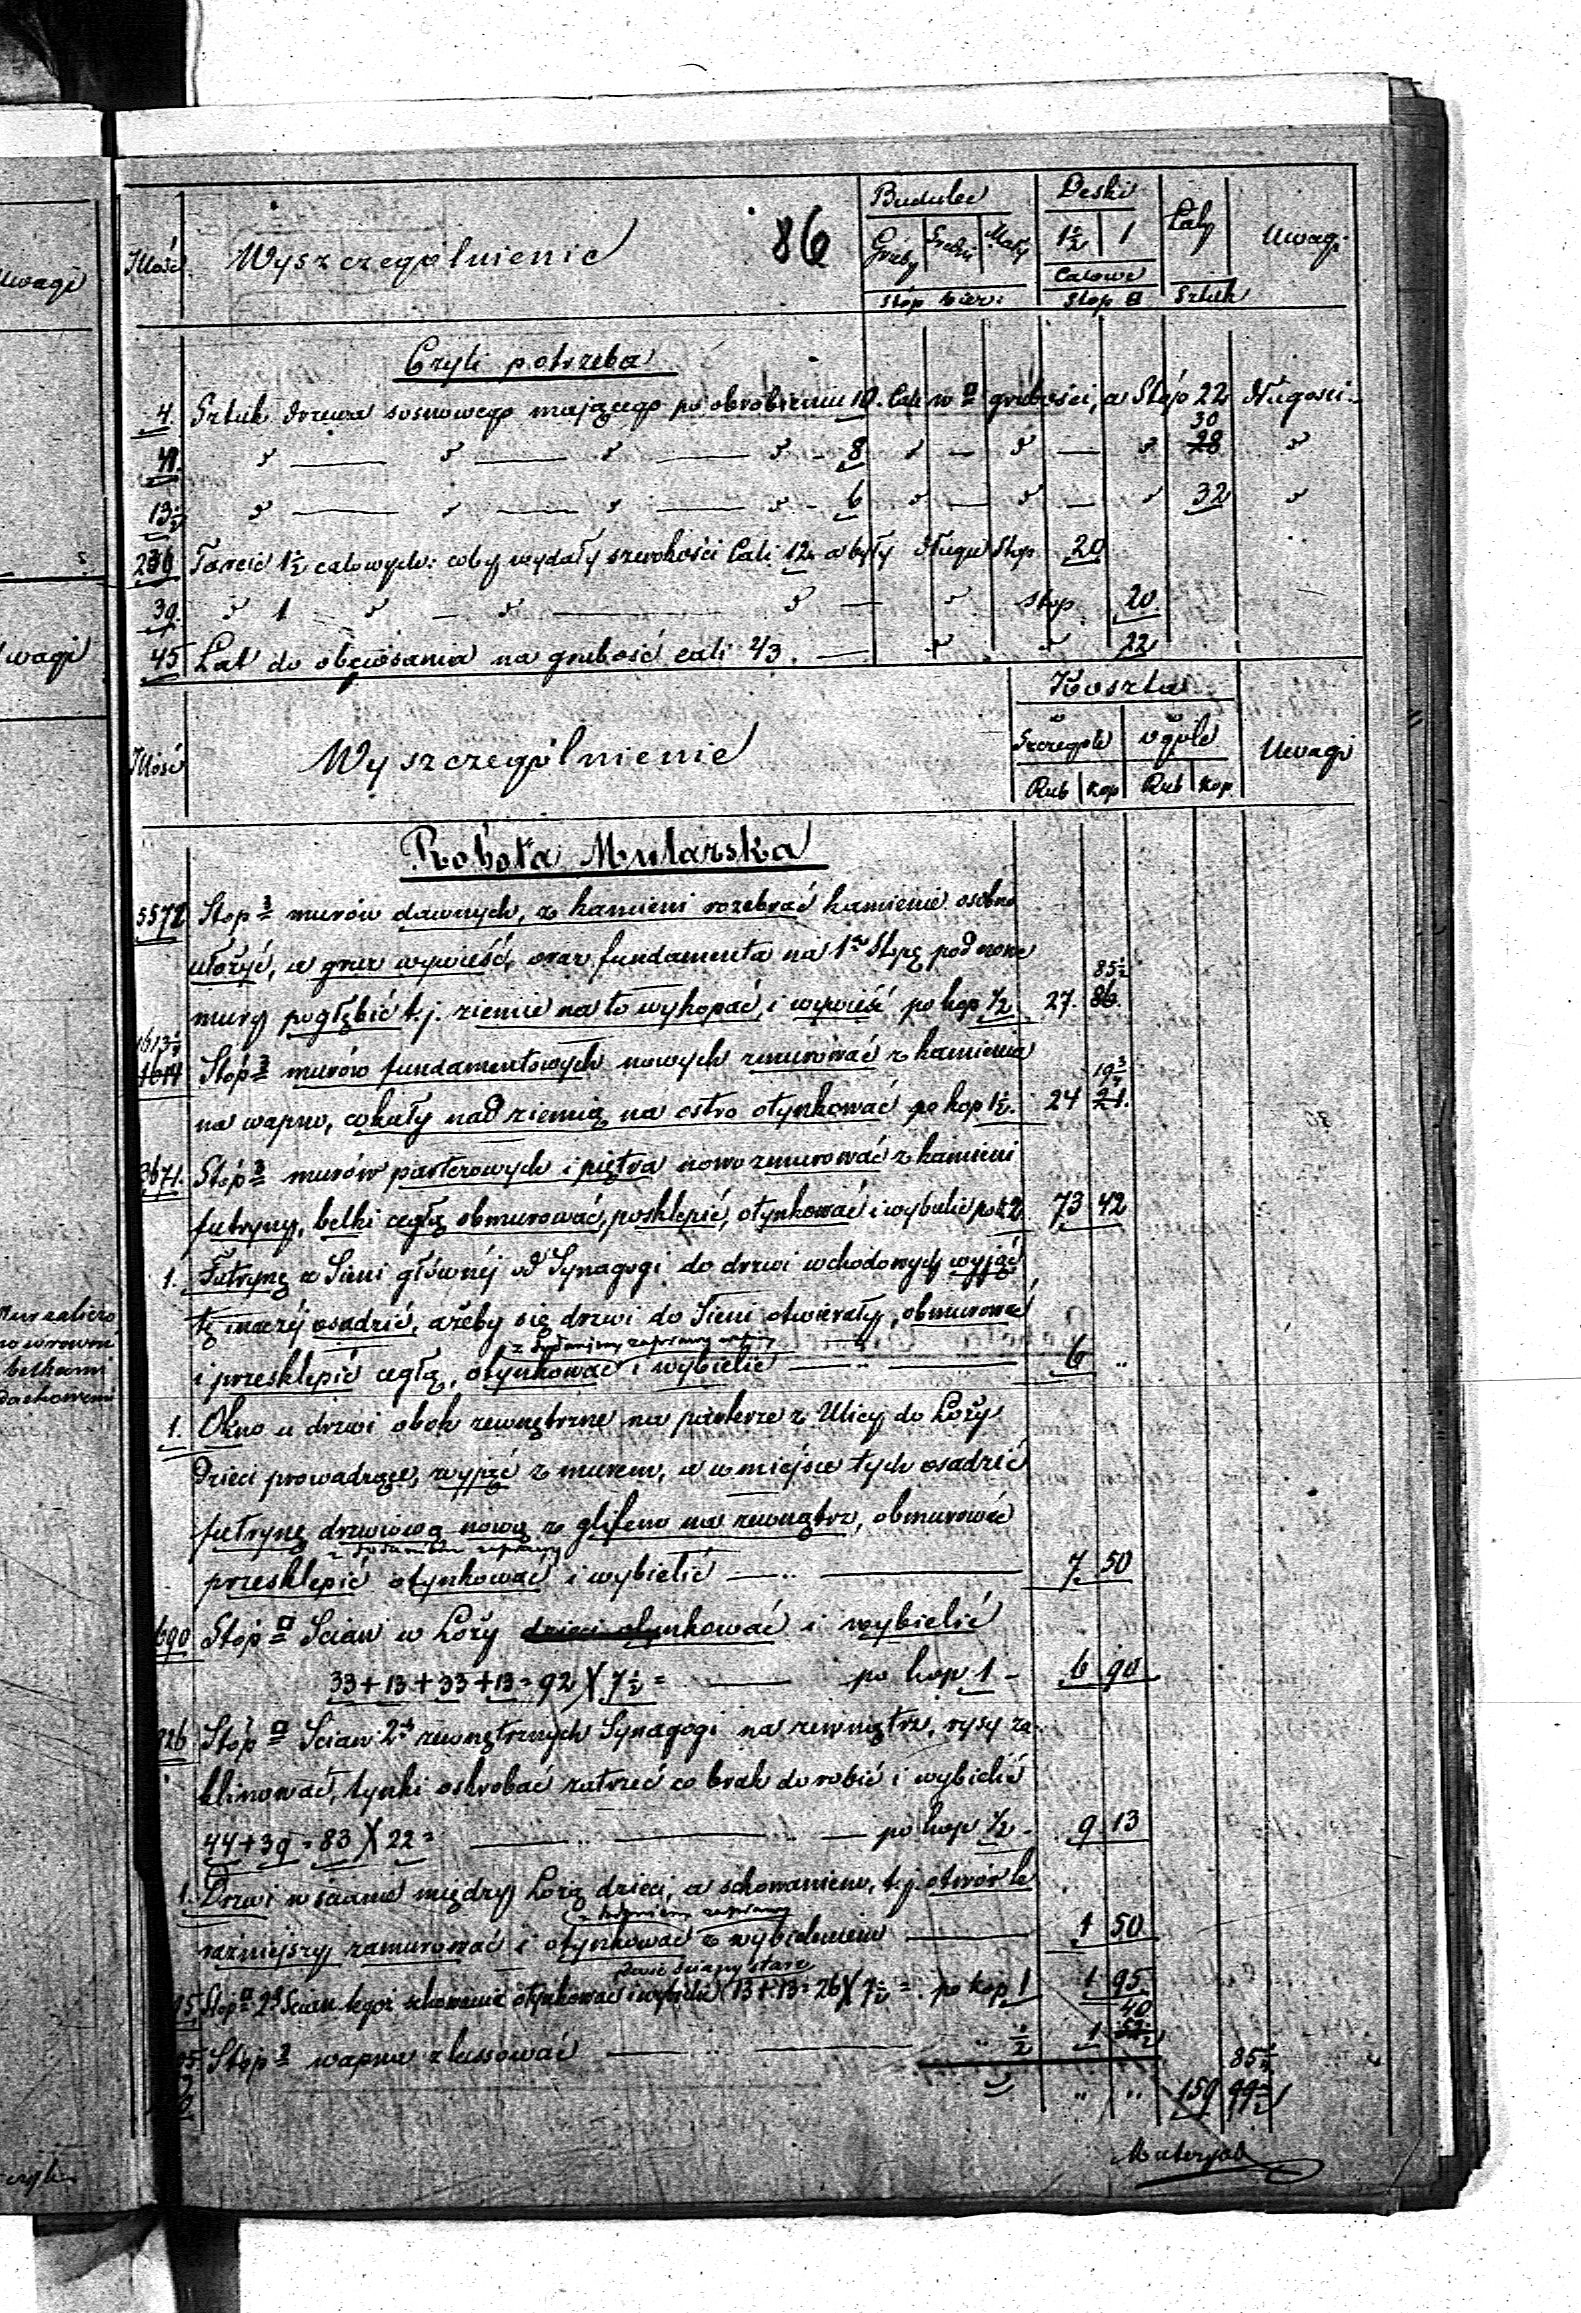 Ilość Wyszczególnienie 86 Budulec Deski Łaty Uwagi
Gruby Średni Mały 1½ 1
Calowe
Stóp bież: Stop □ Sztuk
Czyli potrzeba
4. Sztuk drzewa sosnowego mającego po obrobieniu 10. Cali w □ grubości, a Stóp 22 długości.
30
" — " — " — " - 8 " — " — " 28 "
13½ " — " — " — " - 6 " — " — " 32 "
Tarcic 1½ calowych: coby wydały szerokości Cali 12. a były długie Stop 20
39. " 1 " — " — " — " Stop 20.
45 Łat do obciosania na grubość cali 4/3. — " " 22
Koszta
Ilość Wyszczególnienie Szczególe Ogóle Uwagi
Rub kop Rub kop
Robota Mularska
5572 Stop 3 murów dawnych, z kamieni rozebrać kamienie osobno
ułożyć, a gruz wywieść, oraz fundamenta na 1ną Stopę pod nowe
85½
mury pogłębić t.j. ziemie na to wykopać, i wywieść po kop ½ 27. 86.
1613½
1614 Stóp 3 murów fundamentowych nowych zmurować z kamienia
19¾
na wapno, cokały nad ziemią na ostro otynkować po kop 1½. 24 21.
3671. Stóp 3 murów parterowych i piętra nowo zmurować z kamieni
futryny, belki cegłą obmurować, posklepić, otynkować i wybielić po k 2 73 42
1. Futrynę z Sieni głównéj od Synagogi do drzwi wchodowych wyjąć
tę inaczéj osadzić, ażeby się drzwi do Sieni otwierały, obmurować
z dodaniem zaprawy
i przesklepić cegłą, otynkować i wybielić — 6 "
1. Okno u drzwi obok zewnętrzne na parterze z Ulicy do Loży
dzieci prowadzące, wyjąć z murem, a w miéjsce tych osadzić
futrynę drzwiową nową z glifeno na zewnątrz, obmurować
z dodaniem zaprawy
przesklepić otynkować i wybielić — 7 50
690 Stóp □ Ścian w Loży dzieci otynkować i wybielić
33+13+33+13=92 X 7½ = — po kop 1 - 6 90
Stóp □ Ścian 2ch zewnętrznych Synagogi na zewnątrz, rysy za-
klinować, tynki oskrobać zatrzeć co brak dorobić i wybielić
44+39=83 X 22= — po kop ½ - 9 13
1. Drzwi w ścianie między Lożą dzieci, a schowaniem, t.j. otwór te
z dodaniem zaprawy
raźniejszy zamurować i otynkować z wybieleniem — 1 50
dwie ściany stare
Stop □ 2ch Ścian tegoż schowania otynkować i wybielić 13+13=26 X 7½ = po kop 1 1 95
40
Stóp 3 wapna zlassować — " ½ 1
85½
" " 159
Materyał